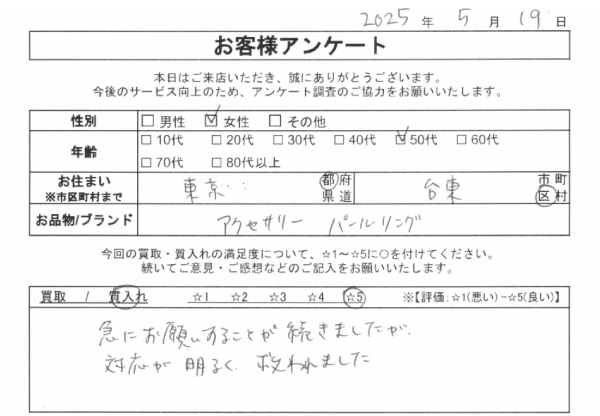 2025 年 5 月 19 日
お客様アンケート
本日はご来店いただき、誠にありがとうございます。
今後のサービス向上のため、アンケート調査のご協力をお願いいたします。
性別 □男性 ☑女性 □その他
年齢 □10代 □20代 □30代 □40代 ☑50代 □60代
□70代 □80代以上
お住まい ※市区町村まで 東京 都府県道 台東 市町区村
お品物/ブランド アクセサリー パールリング
今回の買取・質入れの満足度について、☆1～☆5に○を付けてください。
続いてご意見・ご感想などのご記入をお願いいたします。
買取 / 質入れ ☆1 ☆2 ☆3 ☆4 ☆5 ※【評価:☆1(悪い)－☆5(良い)】
急にお願いすることが続きましたが、
対応が明るく、救われました